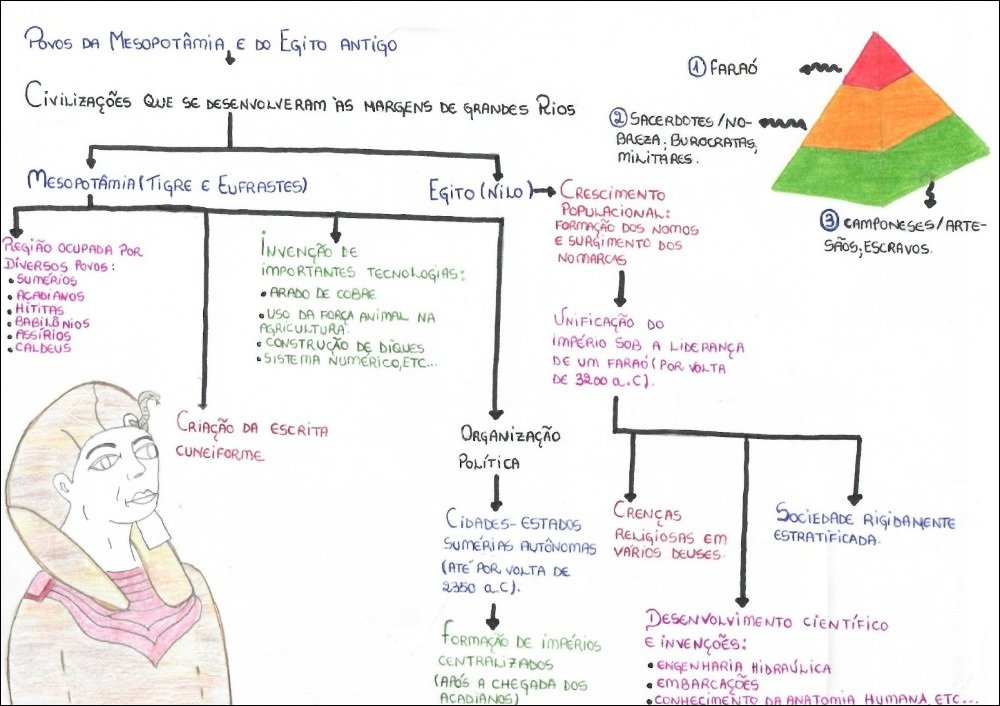 Povos da Mesopotâmia e do Egito antigo
Civilizações que se desenvolveram às margens de grandes Rios
Mesopotâmia (Tigre e Eufrastes)
Egito (Nilo)
Região ocupada por
diversos povos:
• Sumérios
• Acadianos
• Hititas
• Babilônios
• Assírios
• Caldeus
Criação da escrita
cuneiforme
Invenção de
importantes tecnologias:
• Arado de cobre
• Uso da força animal na
agricultura.
• Construção de diques
• Sistema numérico, etc...
Organização
Política
Cidades-Estados
sumérias autônomas
(até por volta de
2350 a.C).
Formação de impérios
centralizados
(após a chegada dos
acadianos)
Crescimento
populacional:
formação dos nomos
e surgimento dos
nomarcas
Unificação do
império sob a liderança
de um faraó (por volta
de 3200 a.C).
Crenças
religiosas em
vários deuses.
Desenvolvimento científico
e invenções:
• Engenharia hidraúlica
• Embarcações
• Conhecimento da anatomia humana, etc...
Sociedade rigidamente
estratificada.
1 Faraó
2 Sacerdotes/No-
breza, Burocratas,
militares.
3 Camponeses/Arte-
sãos, escravos.